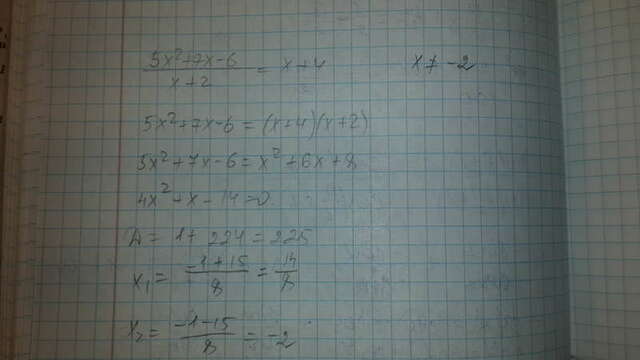 5x²+7x-6 / x+2 = x+4   x ≠ -2
5x²+7x-6 = (x+4)(x+2)
5x²+7x-6 = x²+6x+8
4x²+x-14=0
D = 1+224 = 225
x₁ = -1+15 / 8 = 14 / 8
x₂ = -1-15 / 8 = -2